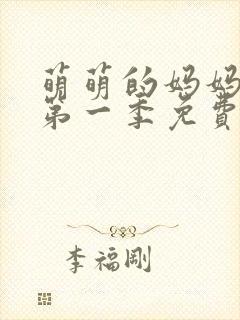 萌萌的妈妈
第一季免費
李福剛